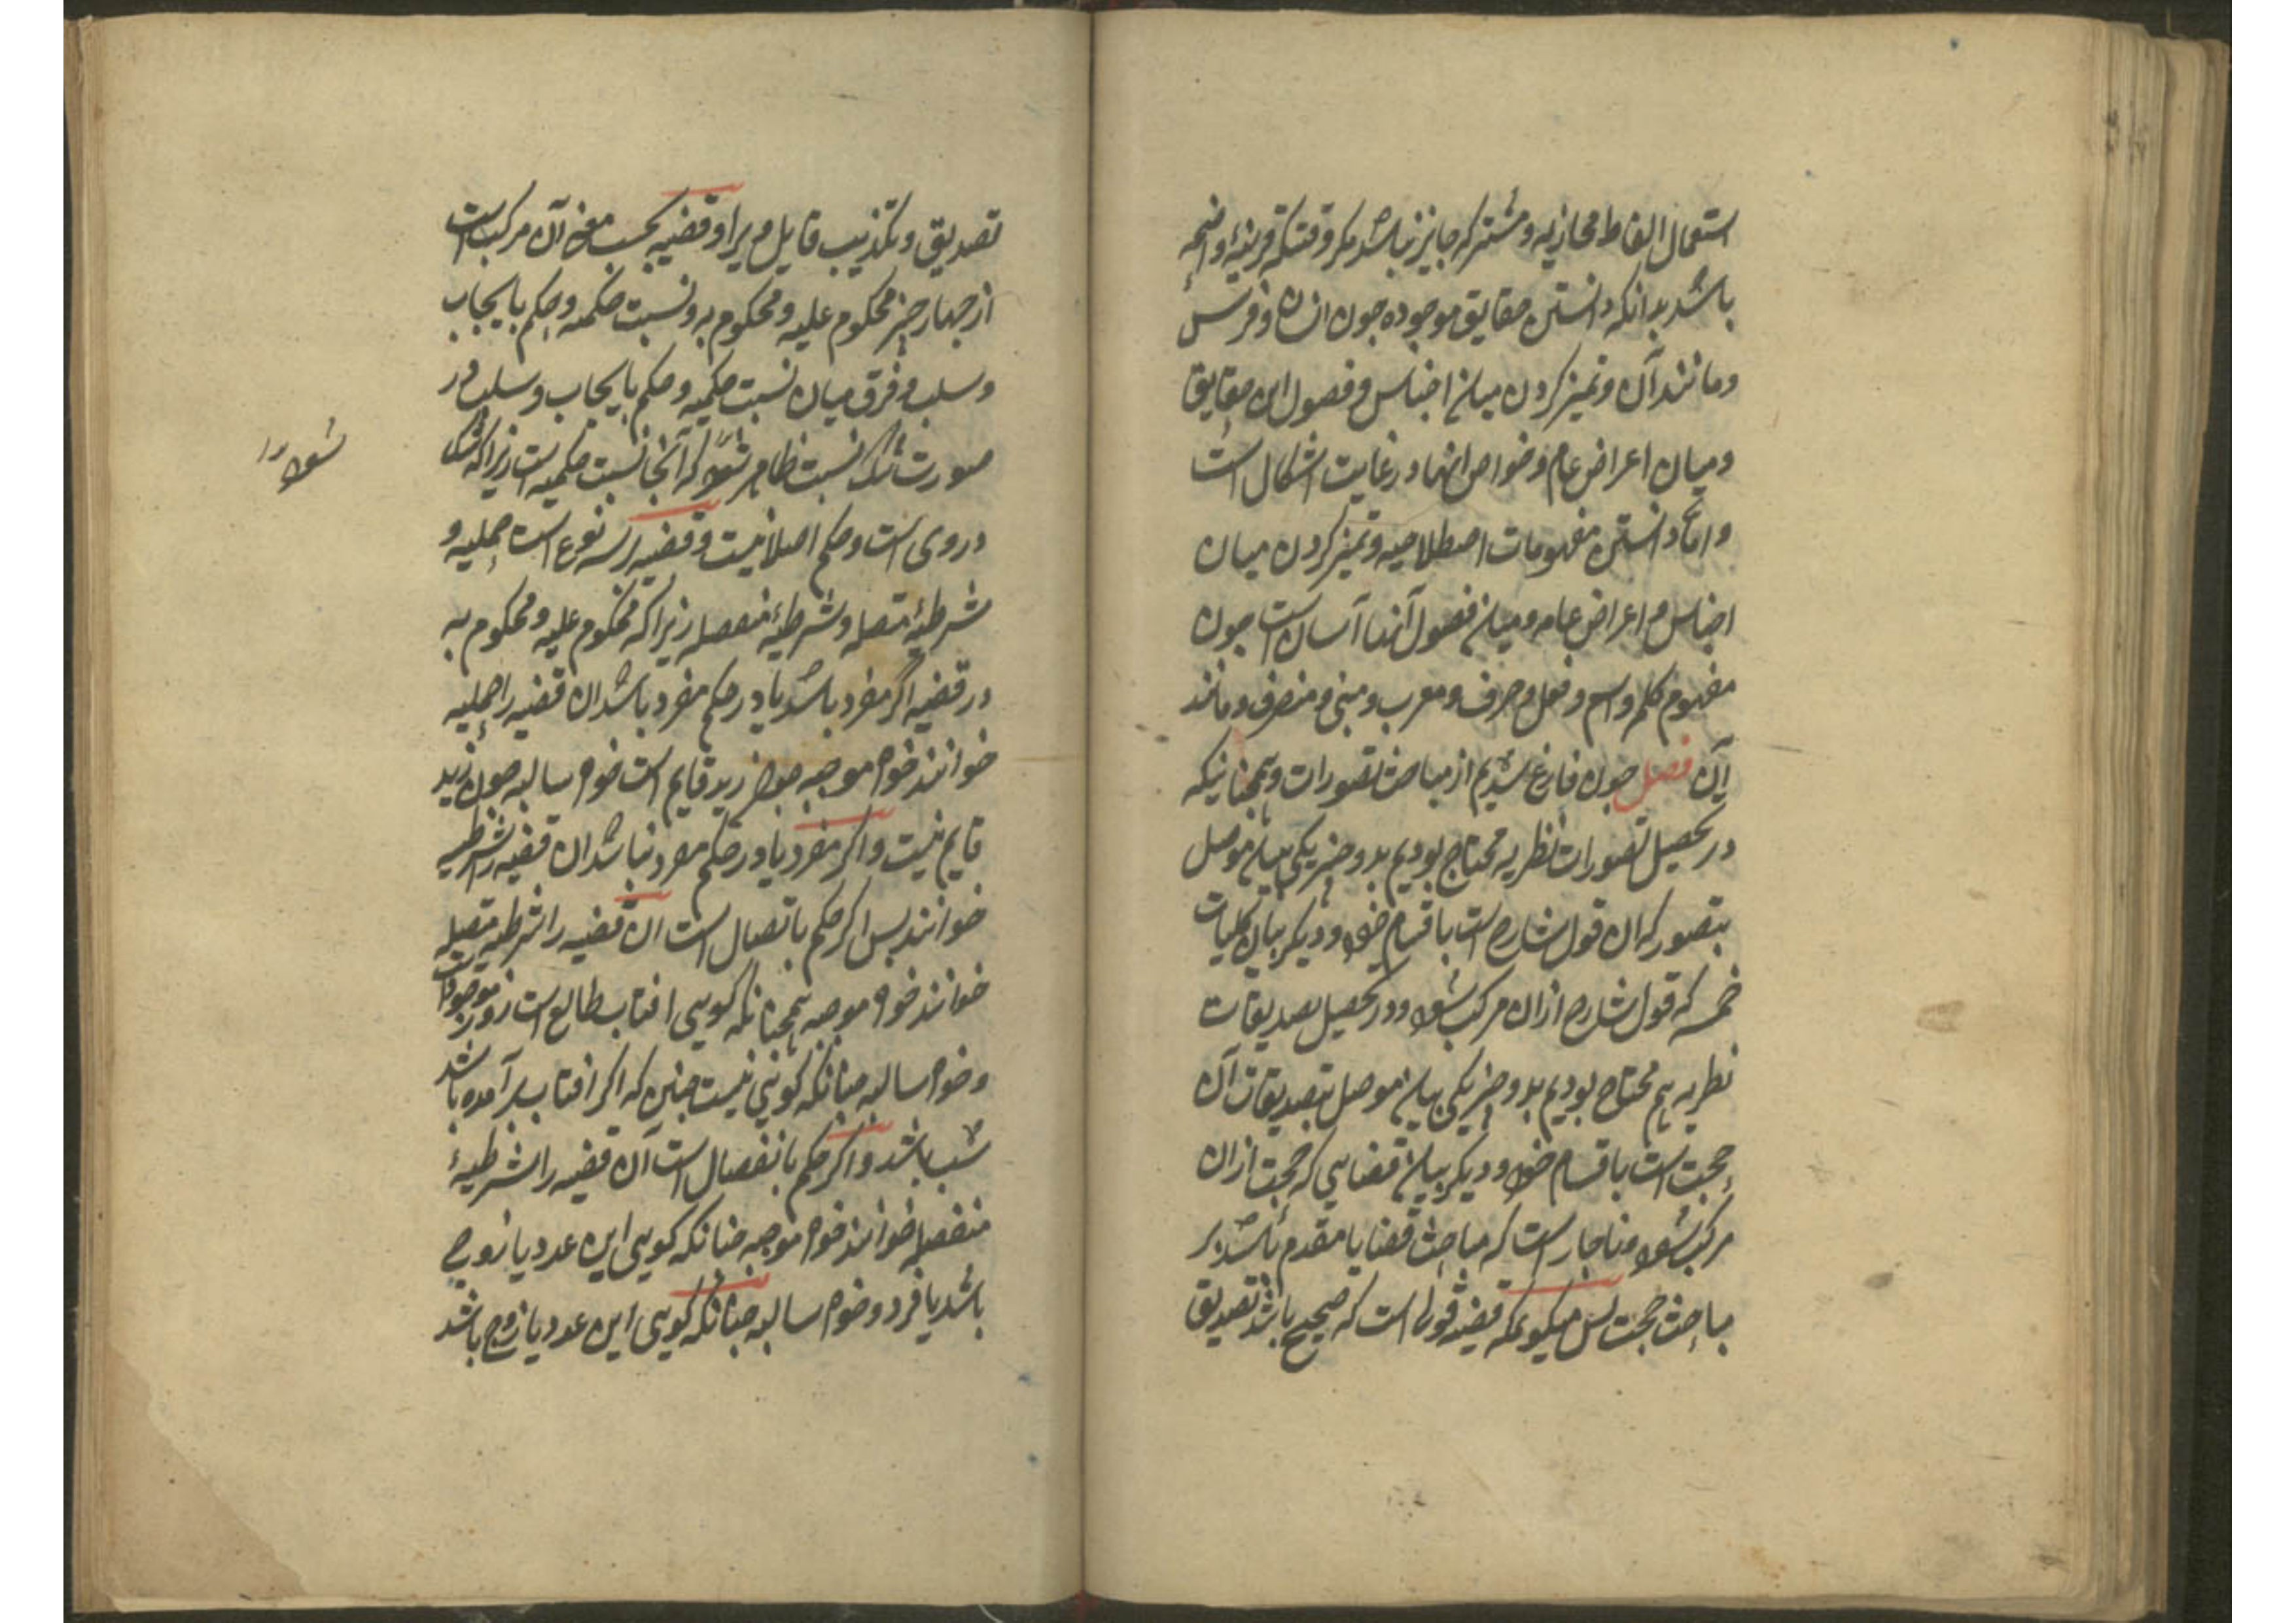 استعمال الفاظ مجازیه و مشترکه جایز نباشد مکر وقتیکه قرینهٔ واضحه
باشد بدانکه دانستن حقایق موجوده جون انسان و فرس
و مانند آن و تمیز کردن میان اجناس و فصول این حقایق
و میان اعراض عام و خواص انها در غایت اشکال است
و اما دانستن مفهومات اصطلاحیه و تمیز کردن میان
اجناس و اعراض عامه و میان فصول آنها آسان است جون
مفهوم کلمه و اسم و فعل و حرف و معرب و مبنی و منصرف و مانند
آن فصل جون فارغ شدیم از مباحث تصورات و همجنانیکه
در تحصیل تصورات نظریه محتاج بودیم بدو جیز یکی بیان موصل
بتصور که ان قول شارح است باقسام خود و دیکر بیان کلیات
خمسه که قول شارح ازان مرکب شود و در تحصیل تصدیقات
نظریه هم محتاج بودیم بدو جیز یکی بیان موصل بتصدیقات آن
حجت است باقسام خود و دیکر بیان قضایی که حجت ازان
مرکب شود و ناجار است که مباحث قضایا مقدم باشد بر
مباحث حجت بس میکویم که قضیه قولی است که صحیح باشد تصدیق
تصدیق و تکذیب قایل وی را و قضیه بحسب معنی آن مرکب است
از جهار جیز محکوم علیه و محکوم به و نسبت حکمیه و حکم بایجاب
و سلب و فرق میان نسبت حکمیه و حکم بایجاب و سلب در
صورت شک نسبت ظاهر شود که آنجا نسبت حکمیه است زیرا که شک
در وی است و حکم اصلا نیست و قضیه بر سه نوع است حملیه و
شرطیهٔ متصله و شرطیهٔ منفصله زیرا که محکوم علیه و محکوم به
در قضیه اکر مفرد باشد یا در حکم مفرد باشد ان قضیه را حملیه
خوانند خواه موجبه جون زید قایم است خواه سالبه جون زید
قایم نیست و اکر مفرد یا در حکم مفرد نباشد ان قضیه را شرطیه
خوانند بس اکر حکم باتصال است ان قضیه را شرطیه متصله
خوانند خواه موجبه همجنانکه کویی افتاب طالع است روز موجود است
و خواه سالبه جنانکه کویی نیست جنین که اکر افتاب برآمده باشد
شب باشد و اکر حکم بانفصال است آن قضیه را شرطیهٔ
منفصله خوانند خواه موجبه جنانکه کویی این عدد یا زوج
باشد یا فرد و خواه سالبه جنانکه کویی این عدد یا زوج باشد
شود